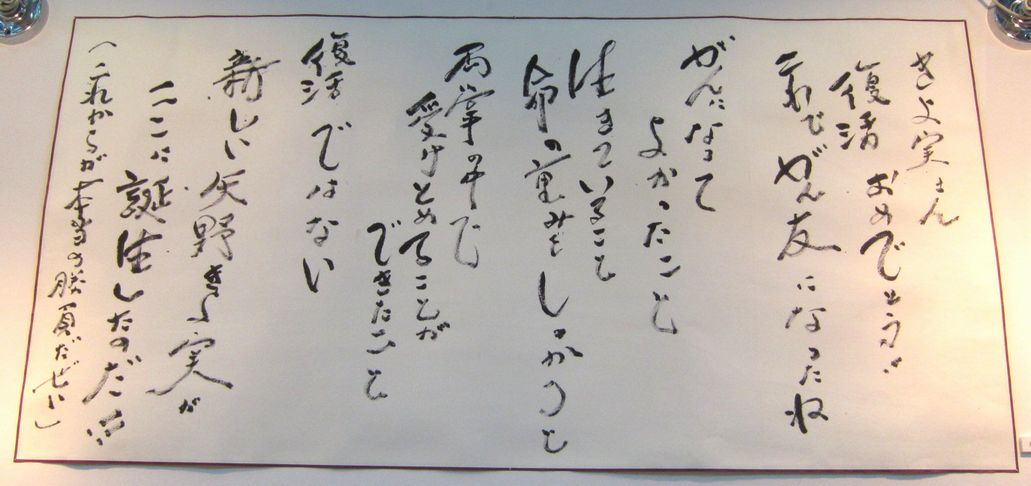 きよ実さん
復活 おめでとう!!
これで がん友になったね
がんになって
よかったこと
生きていること
命の重みをしっかりと
両掌の中で
受けとめることが
できたこと
復活 ではない
新しい矢野きよ実が
ここに誕生したのだ!!!
(これからが本当の勝負だぜい)